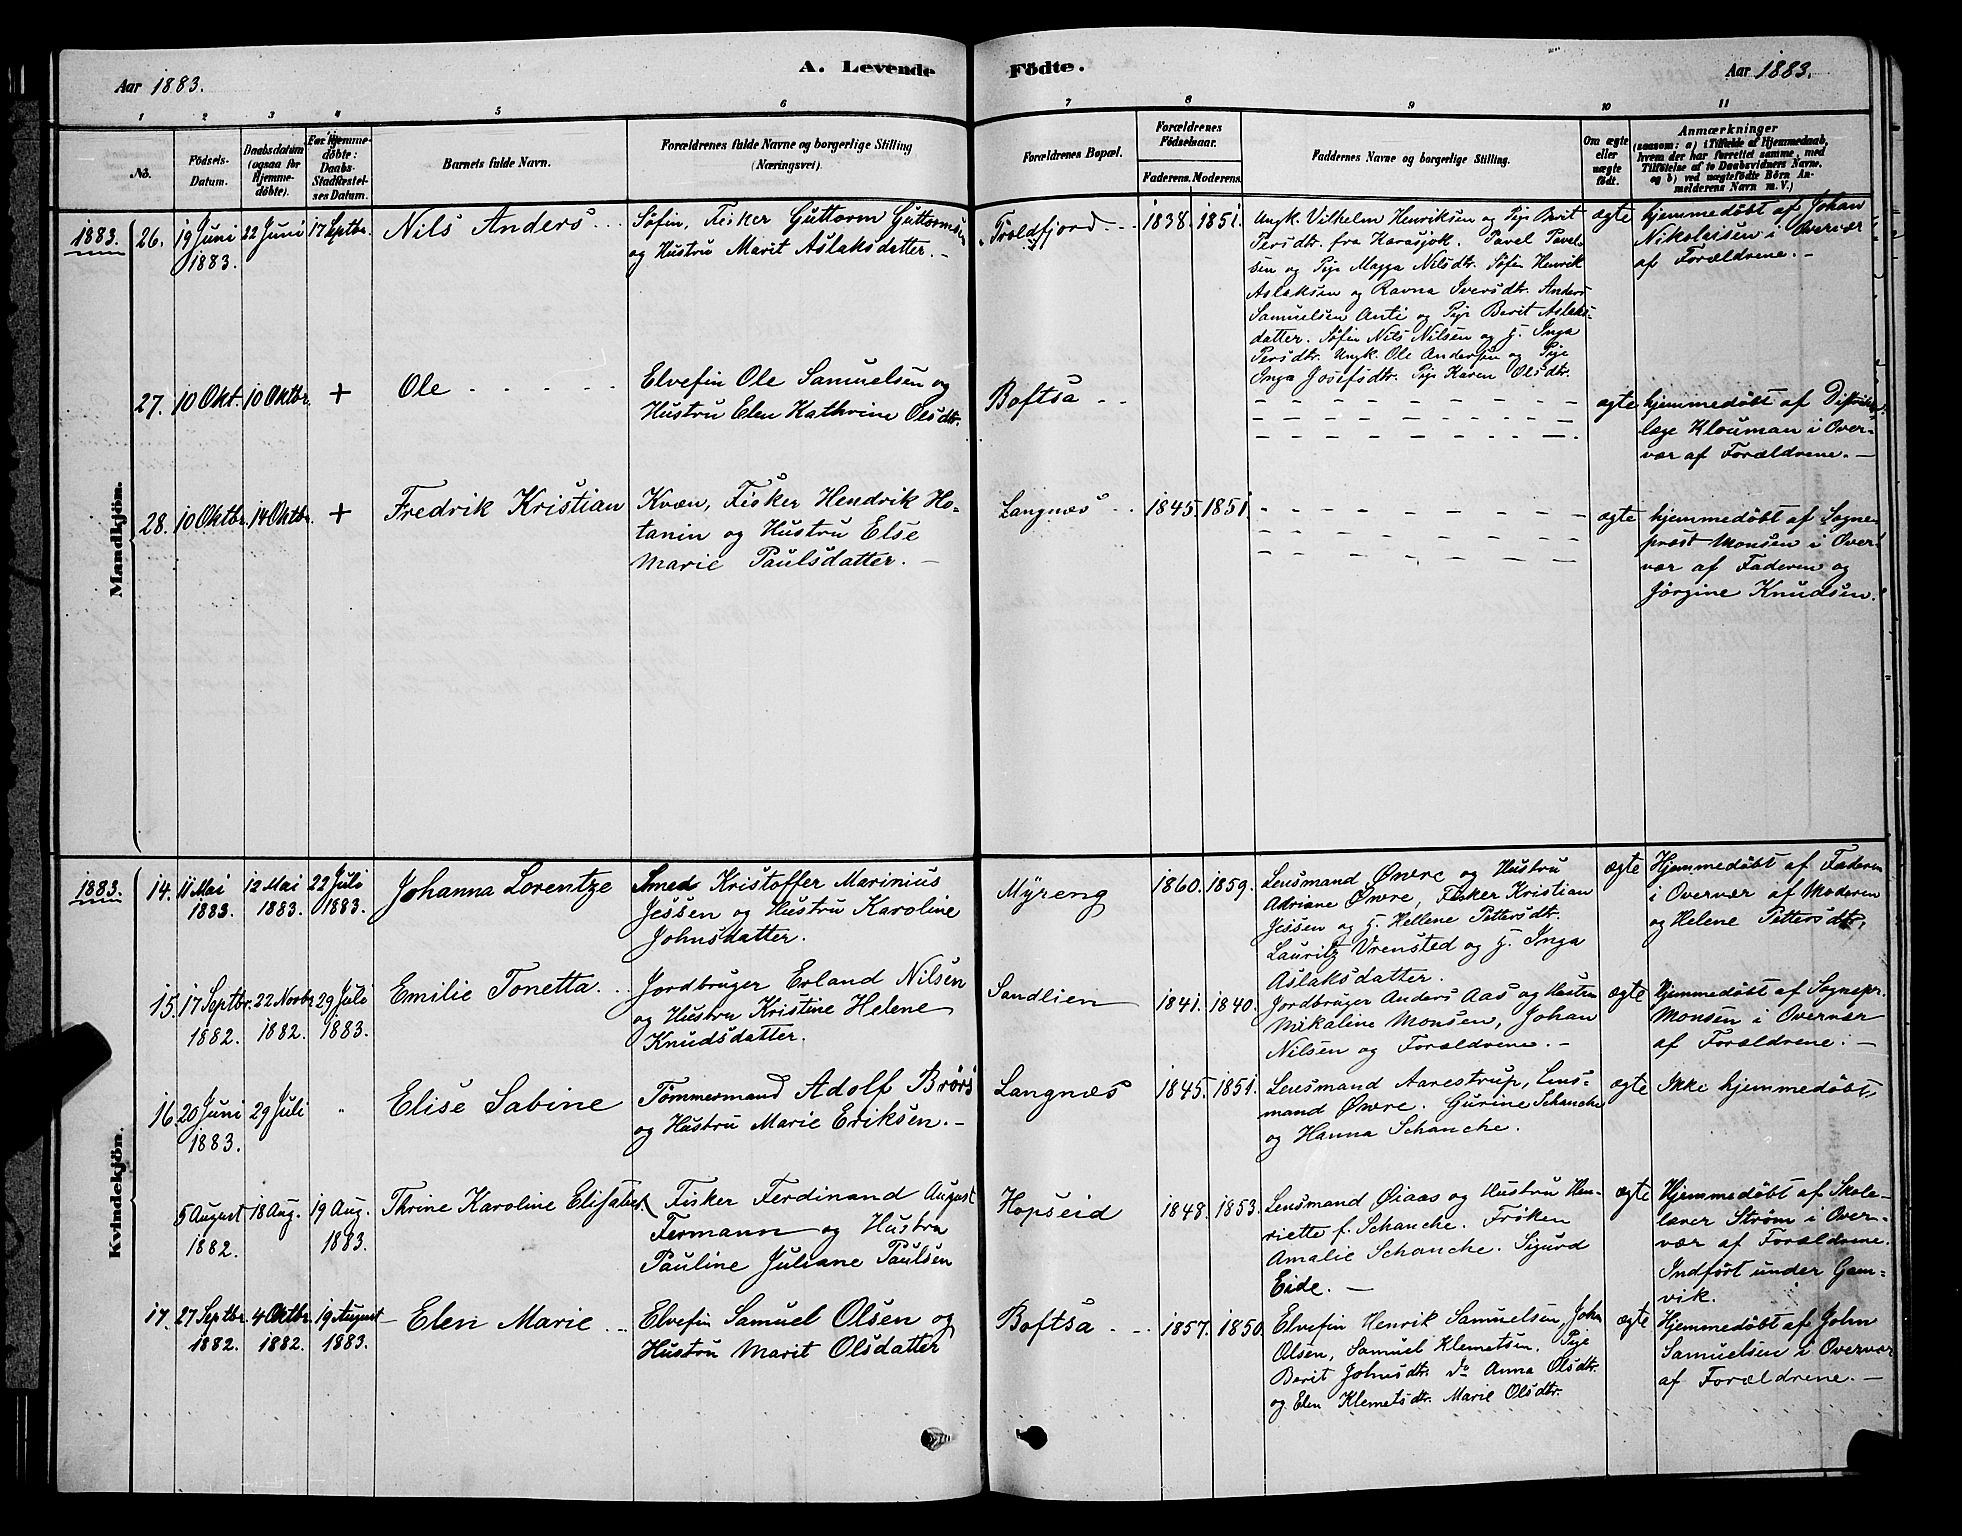 Aar 1883.
A. Levende Födte.
Aar 1883.
1 2 3 4 5 6 7 8 9 10 11
No.
Födsels-
Datum.
Daabsdatum
(ogsaa för
Hjemme-
döbte).
For Hjemme-
döbte:
Daabs-
Stadfæstel-
ses Datum.
Barnets fulde Navn.
Forældrenes fulde Navne og borgerlige Stilling
(Næringsvei).
Forældrenes Bopæl.
Forældrenes
Födselsaar.
Faderens. Moderens.
Faddernes Navne og borgerlige Stilling.
Om ægte
eller
uægte
födt.
Anmærkninger
(saasom: a) i Tilfælde af Hjemmedaab,
hvem der har forrettet samme, med
Tilföielse af to Daabsvidners Navne,
og b) ved uægtefödte Börn An-
melderens Navn m. V.)
Mandkjön.
1883. 26. 19 Juni
1883.
22 Juni
17 Septbr.
Nils Anders
Søfin, Fisker Guttorm Guttormsen
og Hustru Marit Aslaksdatter.
Troldfjord
1838. 1851.
Ungk. Vilhelm Henriksen og Pige Berit
Persdtr. fra Karasjok. Pavel Pavel-
sen og Pige Magga Nilsdtr. Søfin Henrik
Aslaksen og Ravna Iversdtr. Anders
Samuelsen Anti og Pige Berit Aslaks-
datter. Søfin Nils Nilsen og H. Inga
Persdtr. Ungk. Ole Andersen og Pige
Inga Josefsdtr. Pige Karen Olsdtr.
ægte
hjemmedøbt af Johan
Nikolaisen i Overvær
af Forældrene. –
27. 10 Okt. 10 Oktbr. +
Ole
Elvefin Ole Samuelsen og
Hustru Elen Kathrine Olsdtr.
Boftsa
ægte
hjemmedøbt af Distrikts-
læge Klouman i Over-
vær af Forældrene. –
28. 10 Oktbr. 14 Oktbr. +
Fredrik Kristian
Kvæn, Fisker Hendrik Ho-
tanin og Hustru Else
Marie Paulsdatter. –
Langnæs
1845. 1851.
ægte
hjemmedøbt af Sogne-
præst Monsen i Over-
vær af Faderen og
Jørgine Knudsen.
Kvindekjön.
1883. 14. 11 Mai
1883.
12 Mai
1883.
22 Juli
1883.
Johanna Lorentze
Smed Kristoffer Marinius
Jessen og Hustru Karoline
Johnsdatter.
Myreng
1860. 1859.
Lensmand Øwre og Hustru
Adriane Øwre, Fisker Kristian
Jessen og H. Hellene Pettersdtr.
Lauritz Vrensted og H. Inga
Aslaksdatter.
ægte
Hjemmedøbt af Faderen
i Overvær af Moderen
og Helene Pettersdtr.
15. 17 Septbr.
1882.
22 Novbr
1882.
29 Juli
1883.
Emilie Tonetta
Jordbruger Erland Nilsen
og Hustru Kristine Helene
Knudsdatter.
Sandlien
1841. 1840.
Jordbruger Anders Aas og Hustru
Mikaline Monsen, Johan
Nilsen og Forældrene. –
ægte
Hjemmedøbt af Sognepr.
Monsen i Overvær
af Forældrene. –
16. 20 Juni
1883.
29 Juli
"
Elise Sabine
Tømmermand Adolf Brørs
og Hustru Marie Eriksen. –
Langnæs
1845. 1851.
Lensmand Aarestrup, Lens-
mand Øwre. Gurine Schanche
og Hanna Schanche.
ægte
Ikke hjemmedøbt.
5 August
1882.
18 Aug.
19 Aug.
1883.
Thrine Karoline Elisabet
Fisker Ferdinand August
Fermann og Hustru
Pauline Juliane Paulsen
Hopseid
1848. 1853.
Lensmand Øiaas og Hustru Hen-
riette f. Schanche. Frøken
Amalie Schanche. Sigurd
Eide. –
ægte
Hjemmedøbt af Skole-
lærer Strøm i Over-
vær af Forældrene.
Indført under Gam-
vik.
17. 27 Septbr.
1882.
4 Oktbr.
1882.
19 August
1883.
Elen Marie
Elvefin Samuel Olsen og
Hustru Marit Olsdatter
Boftsa
1857. 1850.
Elvefin Henrik Samuelsen, Johan
Olsen, Samuel Klemetsen. Pige
Berit Johnsdtr. do Anna Olsdtr.
og Elen Klemetsdtr. Marie Olsdtr.
ægte
Hjemmedøbt af John
Samuelsen i Overvær
af Forældrene. –